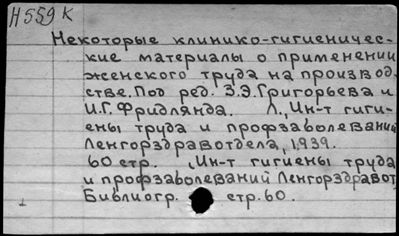 Н559К
Некоторые клинико-гигиеничес-
кие материалы о применении
женского труда на производ-
стве. Под ред. З.Э.Григорьева и
И.Г.Фридлянда. Л., Ин-т гиги-
ены труда и профзаболеваний
Ленгорздравотдела, 1939.
60 стр. (Ин-т гигиены труда
и профзаболеваний Ленгорздравот
Библиогр. стр.60.